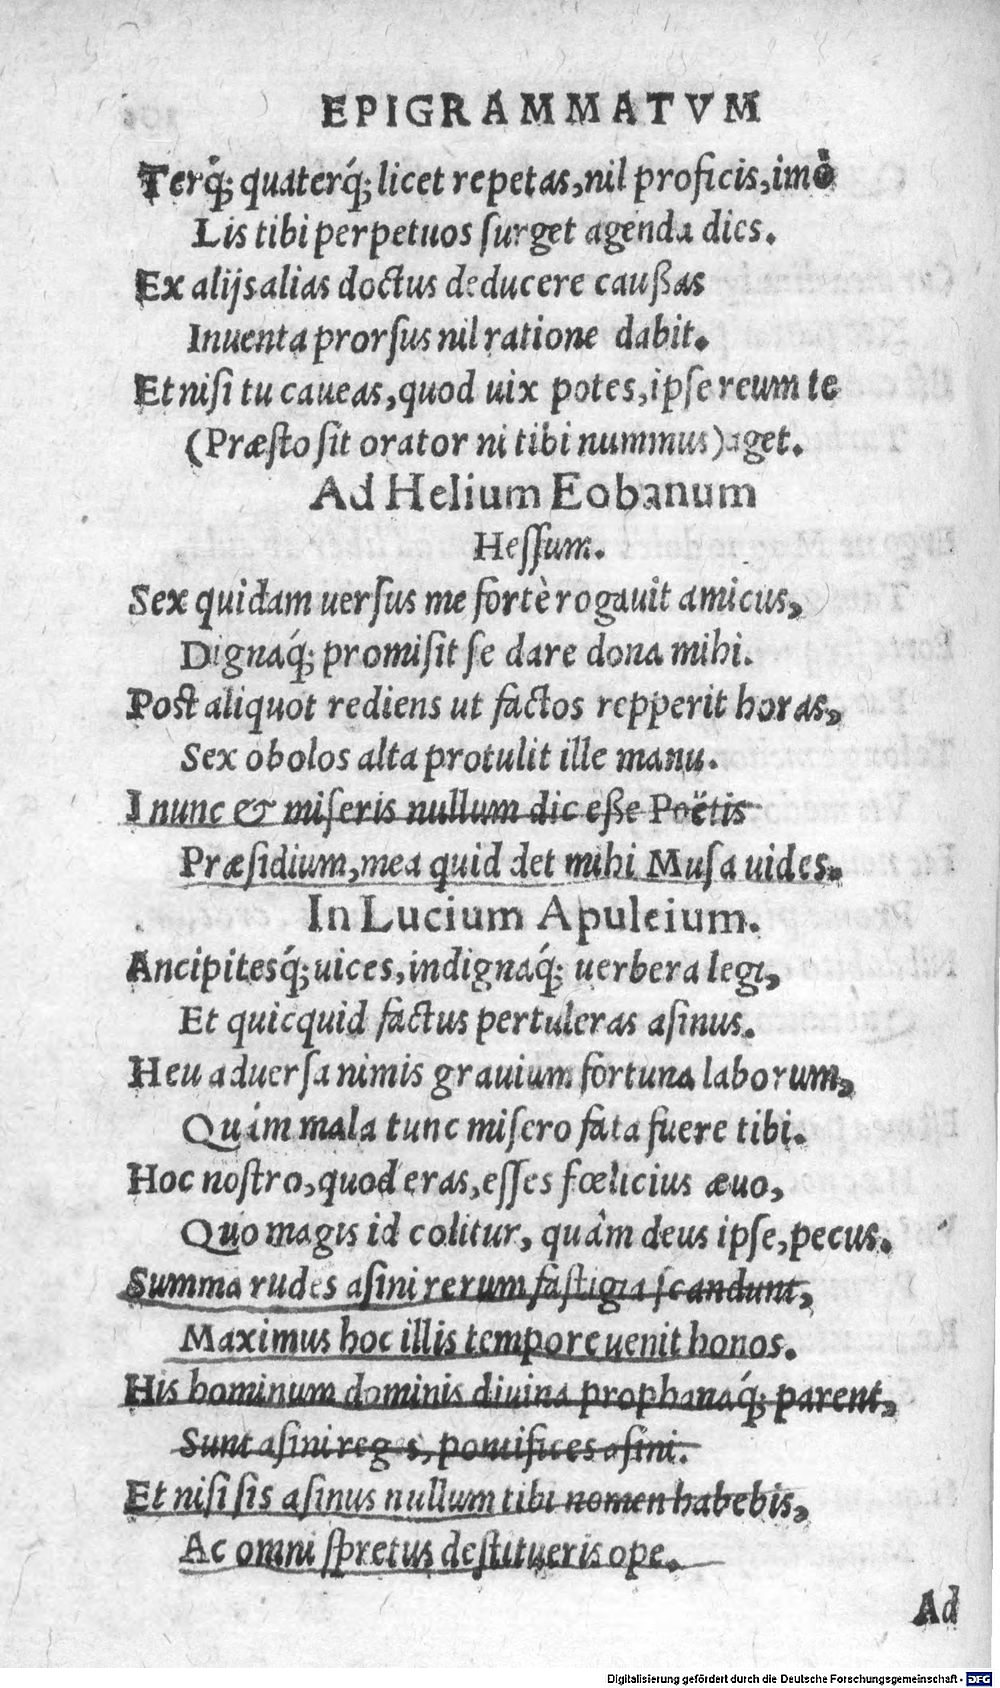 EPIGRAMMATVM
Terq́; quaterq́; licet repetas, nil proficis, imò
Lis tibi perpetuos ſurget agenda dies.
Ex alijs alias doctus deducere cauſſas
Inuenta prorſus nil ratione dabit.
Et niſi tu caueas, quod uix potes, ipſe reum te
(Præſto ſit orator ni tibi nummus) aget.
Ad Helium Eobanum
Heſſum.
Sex quidam uerſus me fortè rogauit amicus,
Dignaq́; promiſit ſe dare dona mihi.
Poſt aliquot rediens ut factos repperit horas,
Sex obolos alta protulit ille manu.
I nunc & miſeris nullum dic eſſe Poëtis
Præſidium, mea quid det mihi Muſa uides.
In Lucium Apuleium.
Ancipitesq́; uices, indignaq́; uerbera legi,
Et quicquid factus pertuleras aſinus.
Heu aduerſa nimis grauium fortuna laborum,
Quàm mala tunc miſero fata fuere tibi.
Hoc noſtro, quod eras, eſſes fœlicius æuo,
Quo magis id colitur, quâm deus ipſe, pecus.
Summa rudes aſini rerum faſtigia ſcandunt,
Maximus hoc illis tempore uenit honos.
His hominum dominis diuina prophanaq́; parent,
Sunt aſini reges, pontifices aſini.
Et niſi ſis aſinus nullum tibi nomen habebis,
Ac omni ſpretus deſtitueris ope.
Ad
Digitalisierung gefördert durch die Deutsche Forschungsgemeinschaft - DFG